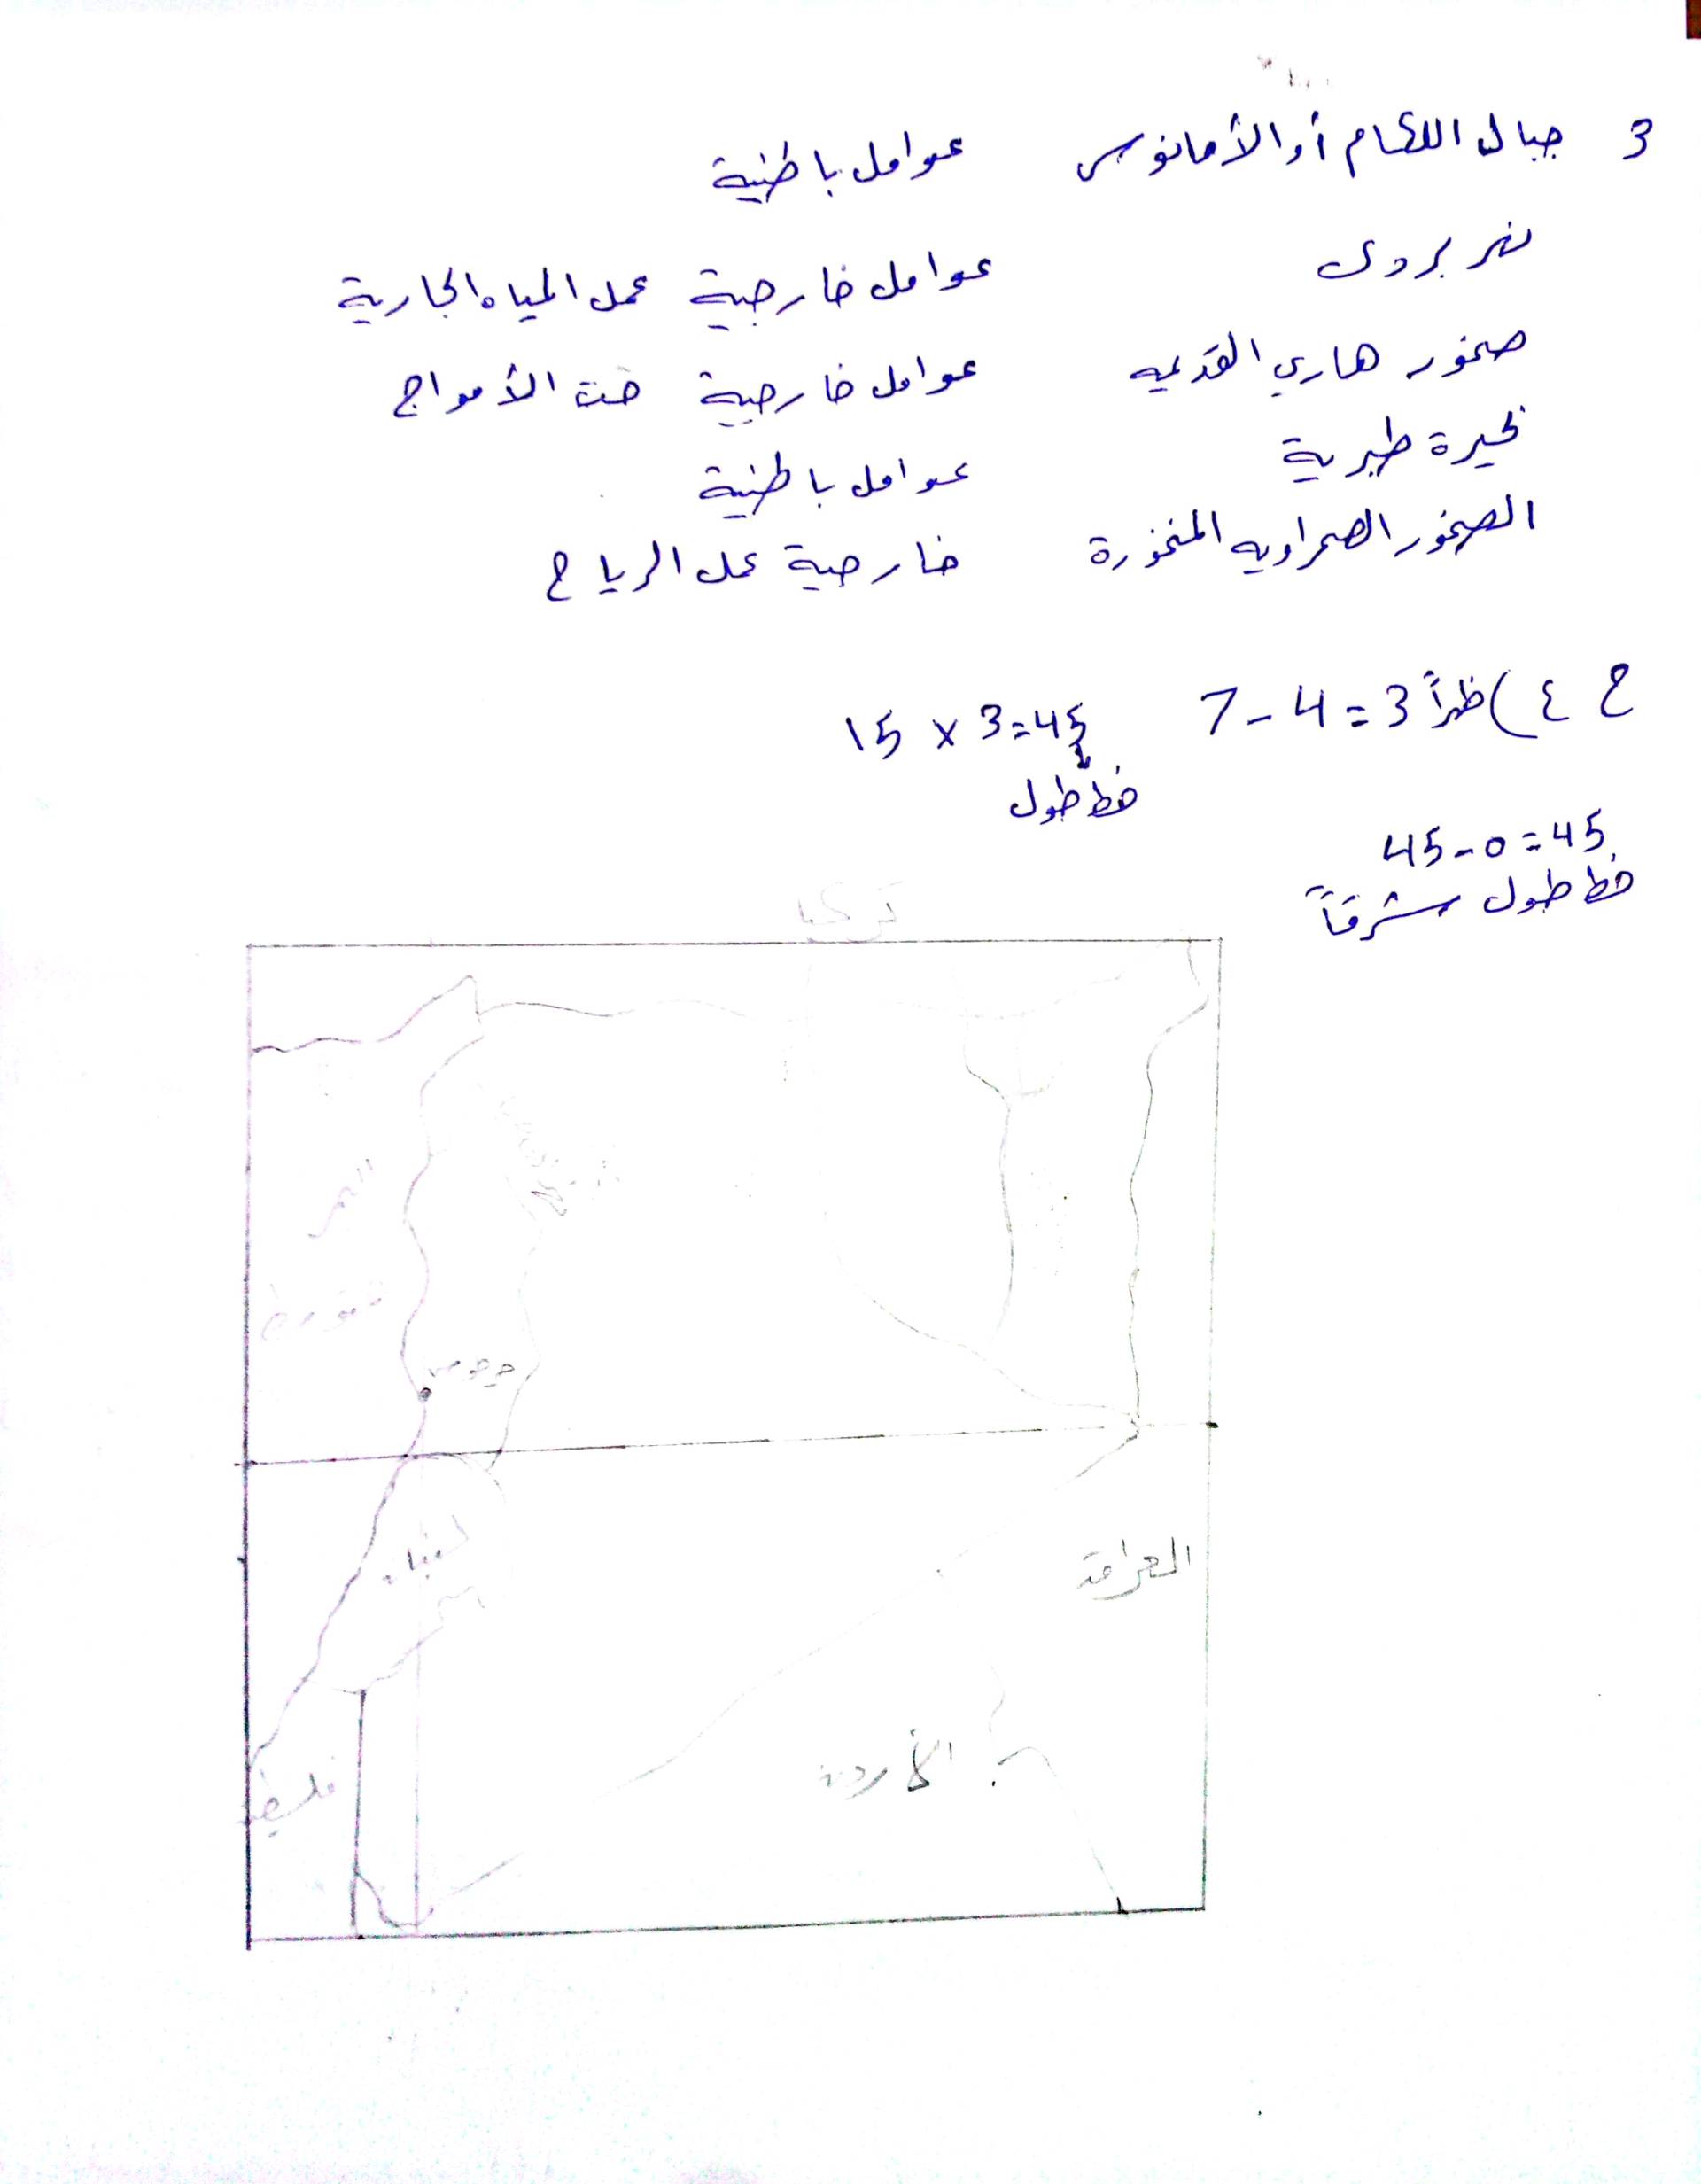 3 جبال اللكام أو الأمانوس عوامل باطنية
نهر بردى عوامل خارجية عمل المياه الجارية
صخور ماري القديمه عوامل خارجية حت الأمواج
بحيرة طبرية عوامل باطنية
الصخور الصحراويه المنخورة خارجية عمل الرياح
ج ٤ ) ظهراً 7 - 4 = 3 15 x 3 = 45
خط طول
45 - 0 = 45
خط طول شرقاً
تركيا
البحر
لبنان
العراق
الأردن